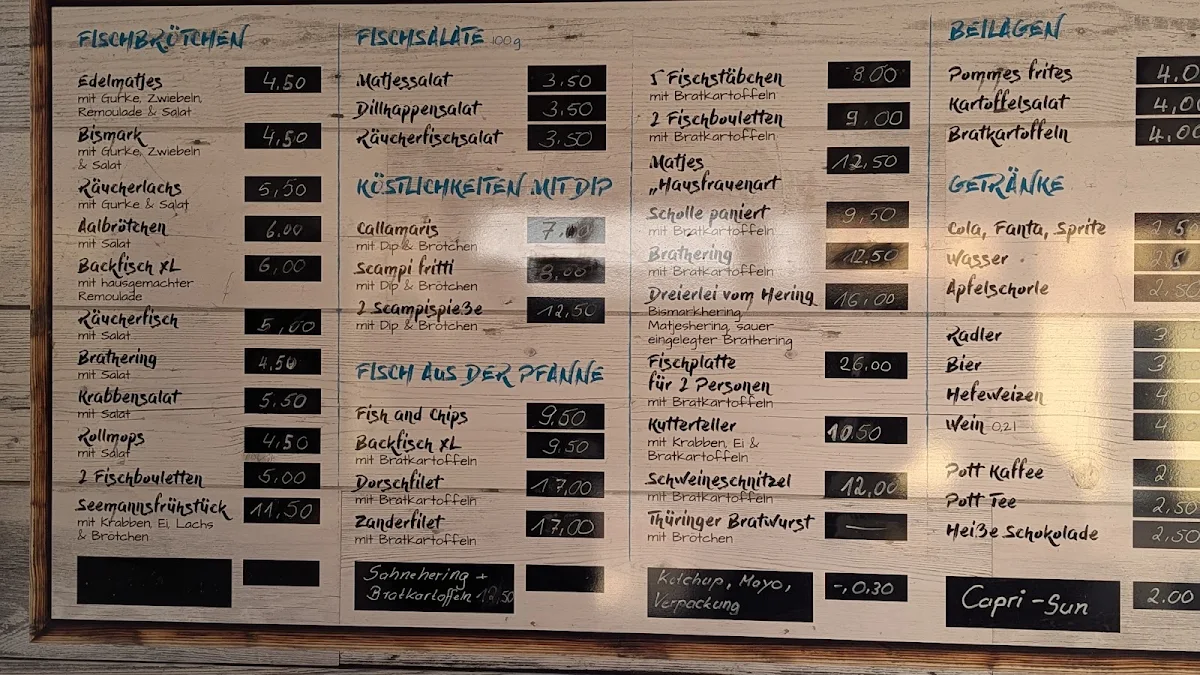 FISCHBRÖTCHEN
Edelmatjes 4,50
mit Gurke, Zwiebeln,
Remoulade & Salat
Bismark 4,50
mit Gurke, Zwiebeln
& Salat
Räucherlachs 5,50
mit Gurke & Salat
Aalbrötchen 6.00
mit Salat
Backfisch XL 6,00
mit hausgemachter
Remoulade
Räucherfisch 5,00
mit Salat
Brathering 4,50
mit Salat
Krabbensalat 5.50
mit Salat
Rollmops 4,50
mit Salat
2 Fischbouletten 5,00
Seemannsfrühstück 11,50
mit Krabben, Ei, Lachs
& Brötchen
FISCHSALATE 100g
Matjessalat 3,50
Dillhappensalat 3,50
Räucherfischsalat 3,50
KÖSTLICHKEITEN MIT DIP
Callamaris 7,00
mit Dip & Brötchen
Scampi fritti 8,00
mit Dip & Brötchen
2 Scampispieße 12,50
mit Dip & Brötchen
FISCH AUS DER PFANNE
Fish and Chips 9,50
Backfisch XL 9,50
mit Bratkartoffeln
Dorschfilet 17,00
mit Bratkartoffeln
Zanderfilet 17,00
mit Bratkartoffeln
Sahnehering +
Bratkartoffeln 12,50
5 Fischstäbchen 8.00
mit Bratkartoffeln
2 Fischbouletten 9.00
mit Bratkartoffeln
Matjes 12,50
„Hausfrauenart
Scholle paniert 9,50
mit Bratkartoffeln
Brathering 12.50
mit Bratkartoffeln
Dreierlei vom Hering 16,00
Bismarkhering,
Matjeshering, sauer
eingelegter Brathering
Fischplatte 26.00
für 2 Personen
mit Bratkartoffeln
Kutterteller 10.50
mit Krabben, Ei &
Bratkartoffeln
Schweineschnitzel 12,00
mit Bratkartoffeln
Thüringer Bratwurst —
mit Brötchen
Ketchup, Mayo, -,0.30
Verpackung
BEILAGEN
Pommes frites 4.0
Kartoffelsalat 4,00
Bratkartoffeln 4,00
GETRÄNKE
Cola, Fanta, Sprite
Wasser
Apfelschorle 2,50
Radler 3
Bier 3
Hefeweizen 4
Wein 0,2l 4
Pott Kaffee 2
Pott Tee 2,50
Heiße Schokolade 2,50
Capri-Sun 2.00